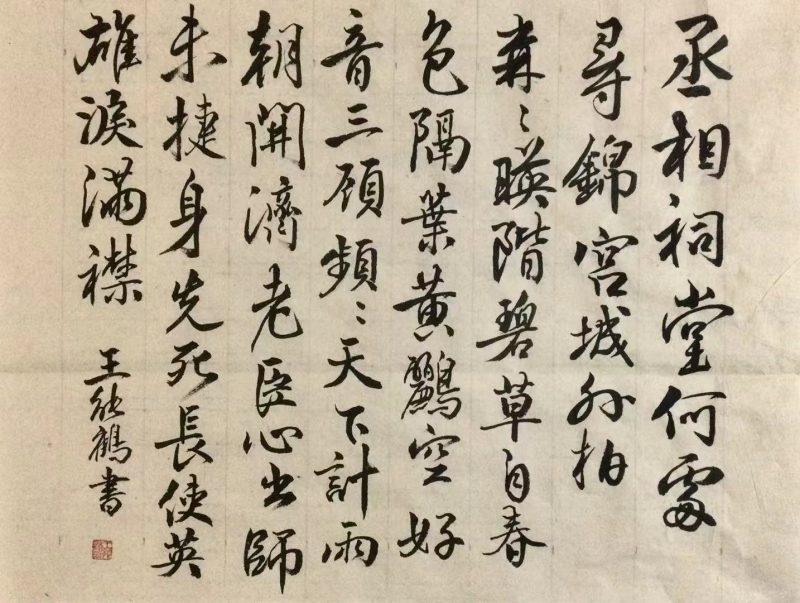 丞相祠堂何處
尋錦宮城外柏
森〻暎階碧草自春
色隔葉黃鸝空好
音三顧頻〻天下計兩
朝開濟老臣心出師
未捷身先死長使英
雄淚滿襟
王能鶴書